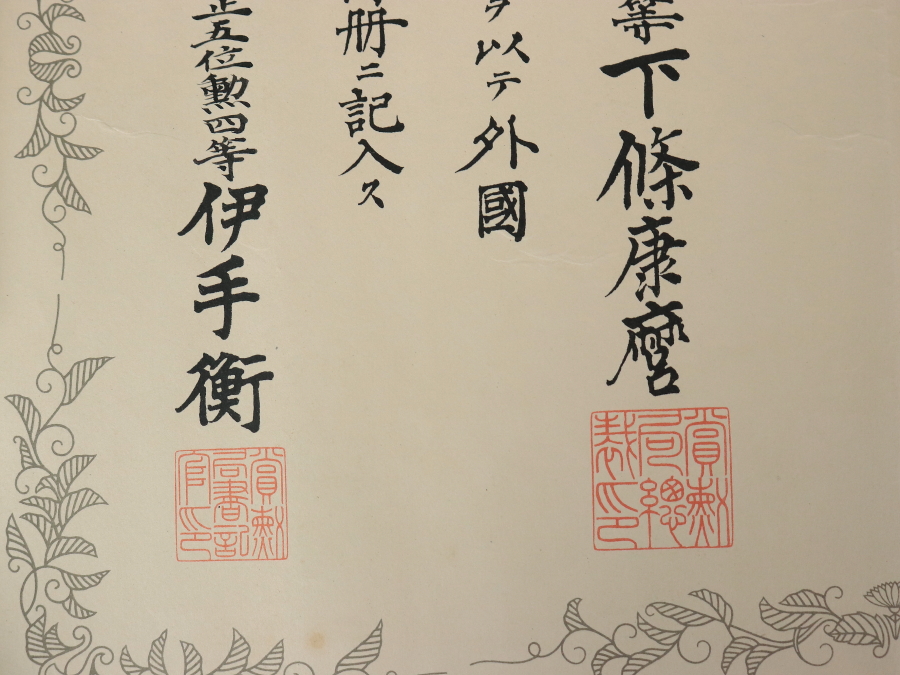 等下條康麿
ヲ以テ外國
冊ニ記入ス
正五位勲四等伊手衡
賞勲局總裁印
賞勲局書記官印